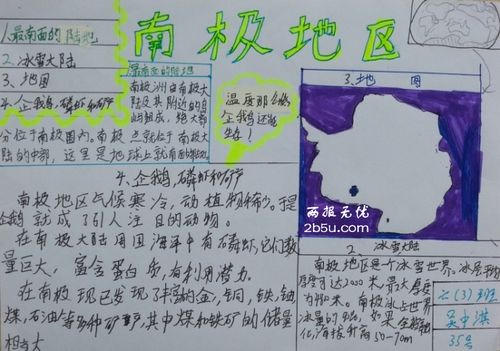 南极地区
人最南面的陆地
2.冰雪大陆
3、地图
4、企鹅、磷虾和矿产
最南面的陆地
南极洲由南极大
陆及其附近的岛
屿组成,绝大部
分位于南极圈内。南极点就位于南极大
陆的中部,这里是地球上就南面
温度那么低
企鹅还能
生存!
3、地图
4、企鹅、磷虾和矿产
南极地区气候寒冷,动植物稀少。于是
企鹅就成了引人注目的动物。
在南极大陆周围海洋中有磷虾,它们数
量巨大,富含蛋白质,有利用潜力。
在南极现已发现了丰富的金,铜,铁,铀
煤,石油等多种矿产,其中煤和铁矿的储量
相当大
两报无忧
2b5u.com
2、冰雪大陆
南极地区是个冰雪世界。冰层
厚度可达2000米,最大厚度
为4750米。南极冰占世界
冰量的90%,如果全部融
化,海拔升高50-70m
七(3)班
吴中淇
35号